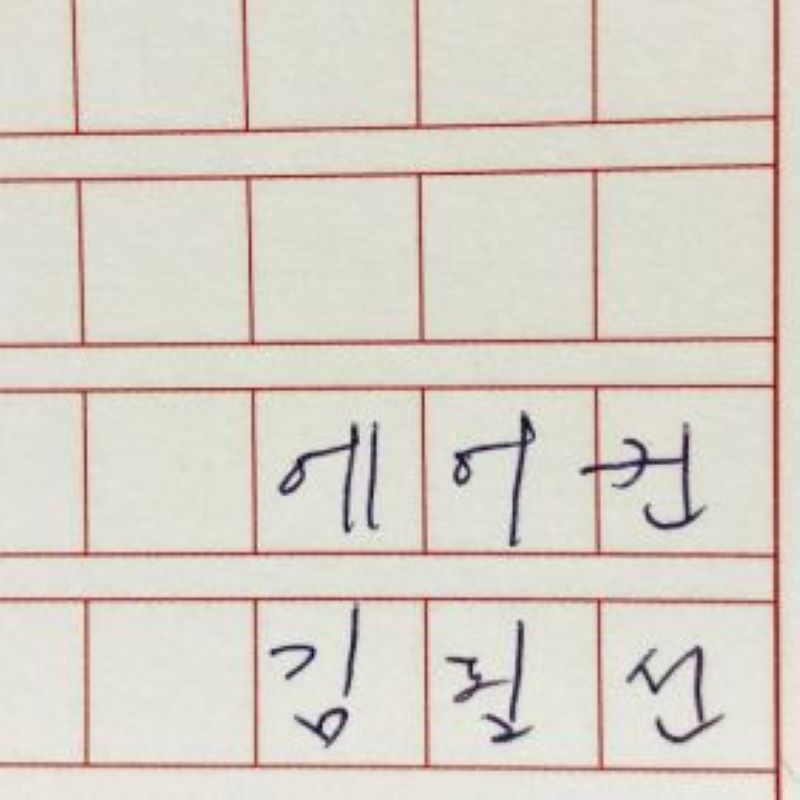 에어컨
김필선